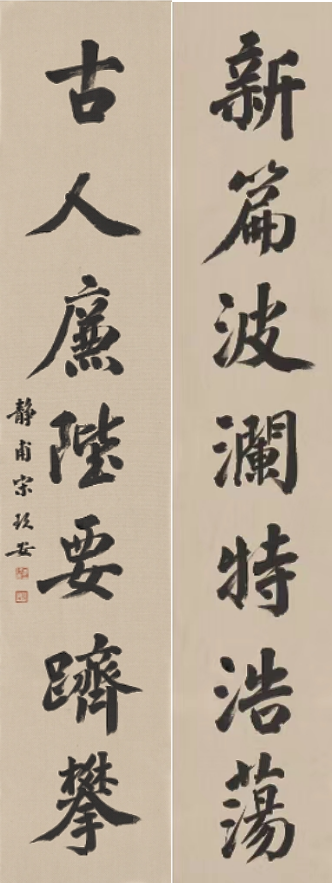 新篇波瀾特浩蕩
古人廉陛要躋攀
靜甫宋玖安